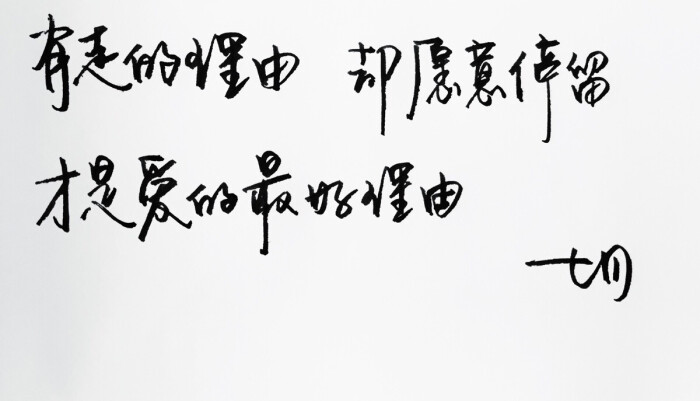 有走的理由 却愿意停留
才是爱的最好理由
一切